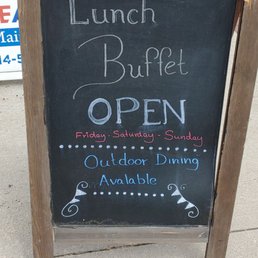 EA
Mai
14-5
Lunch
Buffet
OPEN
Friday - Saturday - Sunday
Outdoor Dining
Avalable